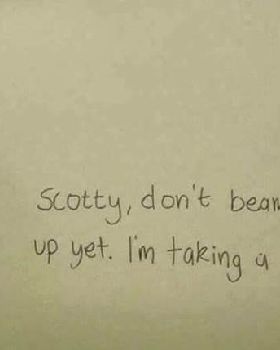 Scotty, don't bear
up yet. I'm taking a